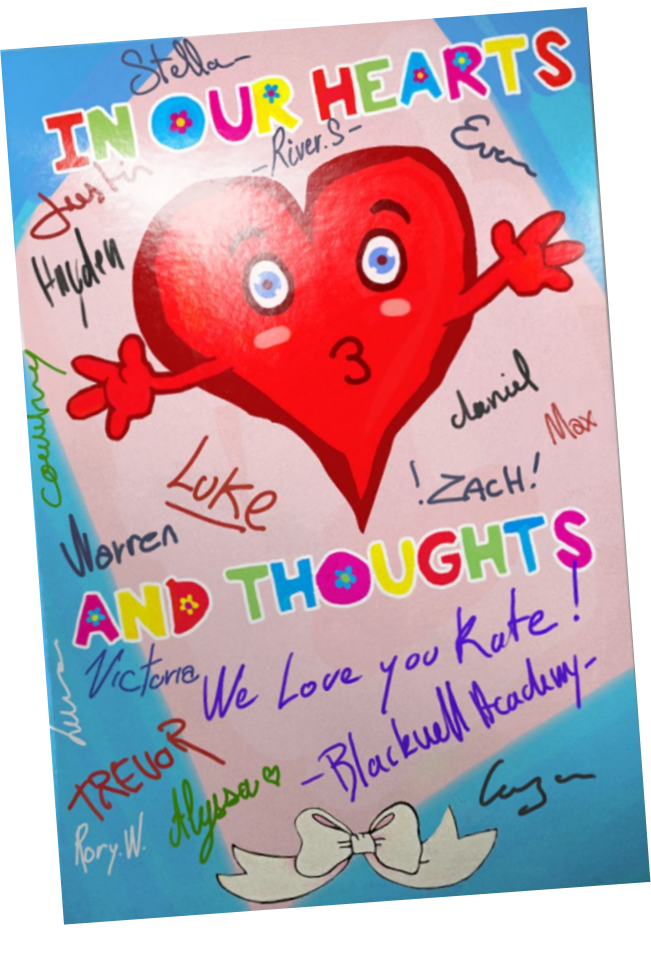 Stella
IN OUR HEARTS
-River.S-
Evan
Justin
Hayden
Courtney
daniel
Max
Luke
!ZACH!
Warren
AND THOUGHTS
Victoria
We Love you Kate!
-Blackwell Academy-
TREVOR
Alyssa ♡
Rory.W.